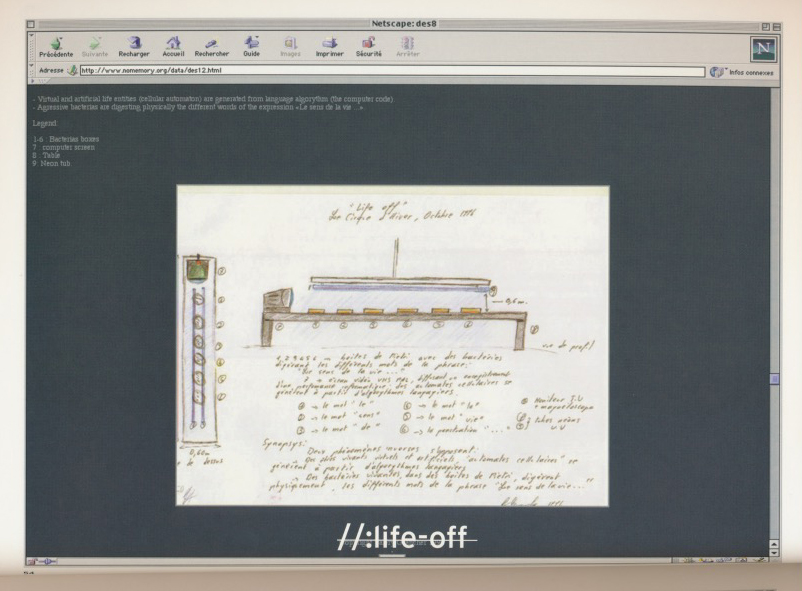 Netscape: des8
Précédente Suivante Recharger Accueil Rechercher Guide Images Imprimer Sécurité Arrêter
N
Adresse http://www.nomemory.org/data/des12.html Infos connexes
- Virtual and artificial life entities (cellular automaton) are generated from language algorythm (the computer code)
- Agressive bacterias are digesting physically the different words of the expression «Le sens de la vie ...».
Legend:
1-6 : Bacterias boxes
7 : computer screen
8 : Table
9: Neon tub
"Life off"
Cirque d'Hiver, Octobre
0,5m.
vue de profil
1 2 3 4 5 6 → boîtes de Pétri avec des bactéries
digérant les différents mots de la phrase:
"Le sens de la vie..."
7 → écran vidéo vers nez, diffusant un enregistrement
d'une performance informatique; des automates cellulaires se
génèrent à partir d'algorythmes langagiers.
① → le mot "le" ④ → le mot "la" ⑦ Moniteur T.V
② → le mot "sens" ⑤ → le mot "vie" + magnétoscope
③ → le mot "de" ⑥ → la ponctuation "..." tubes néons
U V
0,60m
de dessus
Synopsys:
Deux phénomènes inverses s'opposent:
- Des êtres vivants virtuels et artificiels, "automates cellulaires" se
génèrent à partir d'algorythmes langagiers
- Des bactéries vivantes, dans des boîtes de Pétri, digèrent
physiquement, les différents mots de la phrase "Le sens de la vie..."
//:life-off